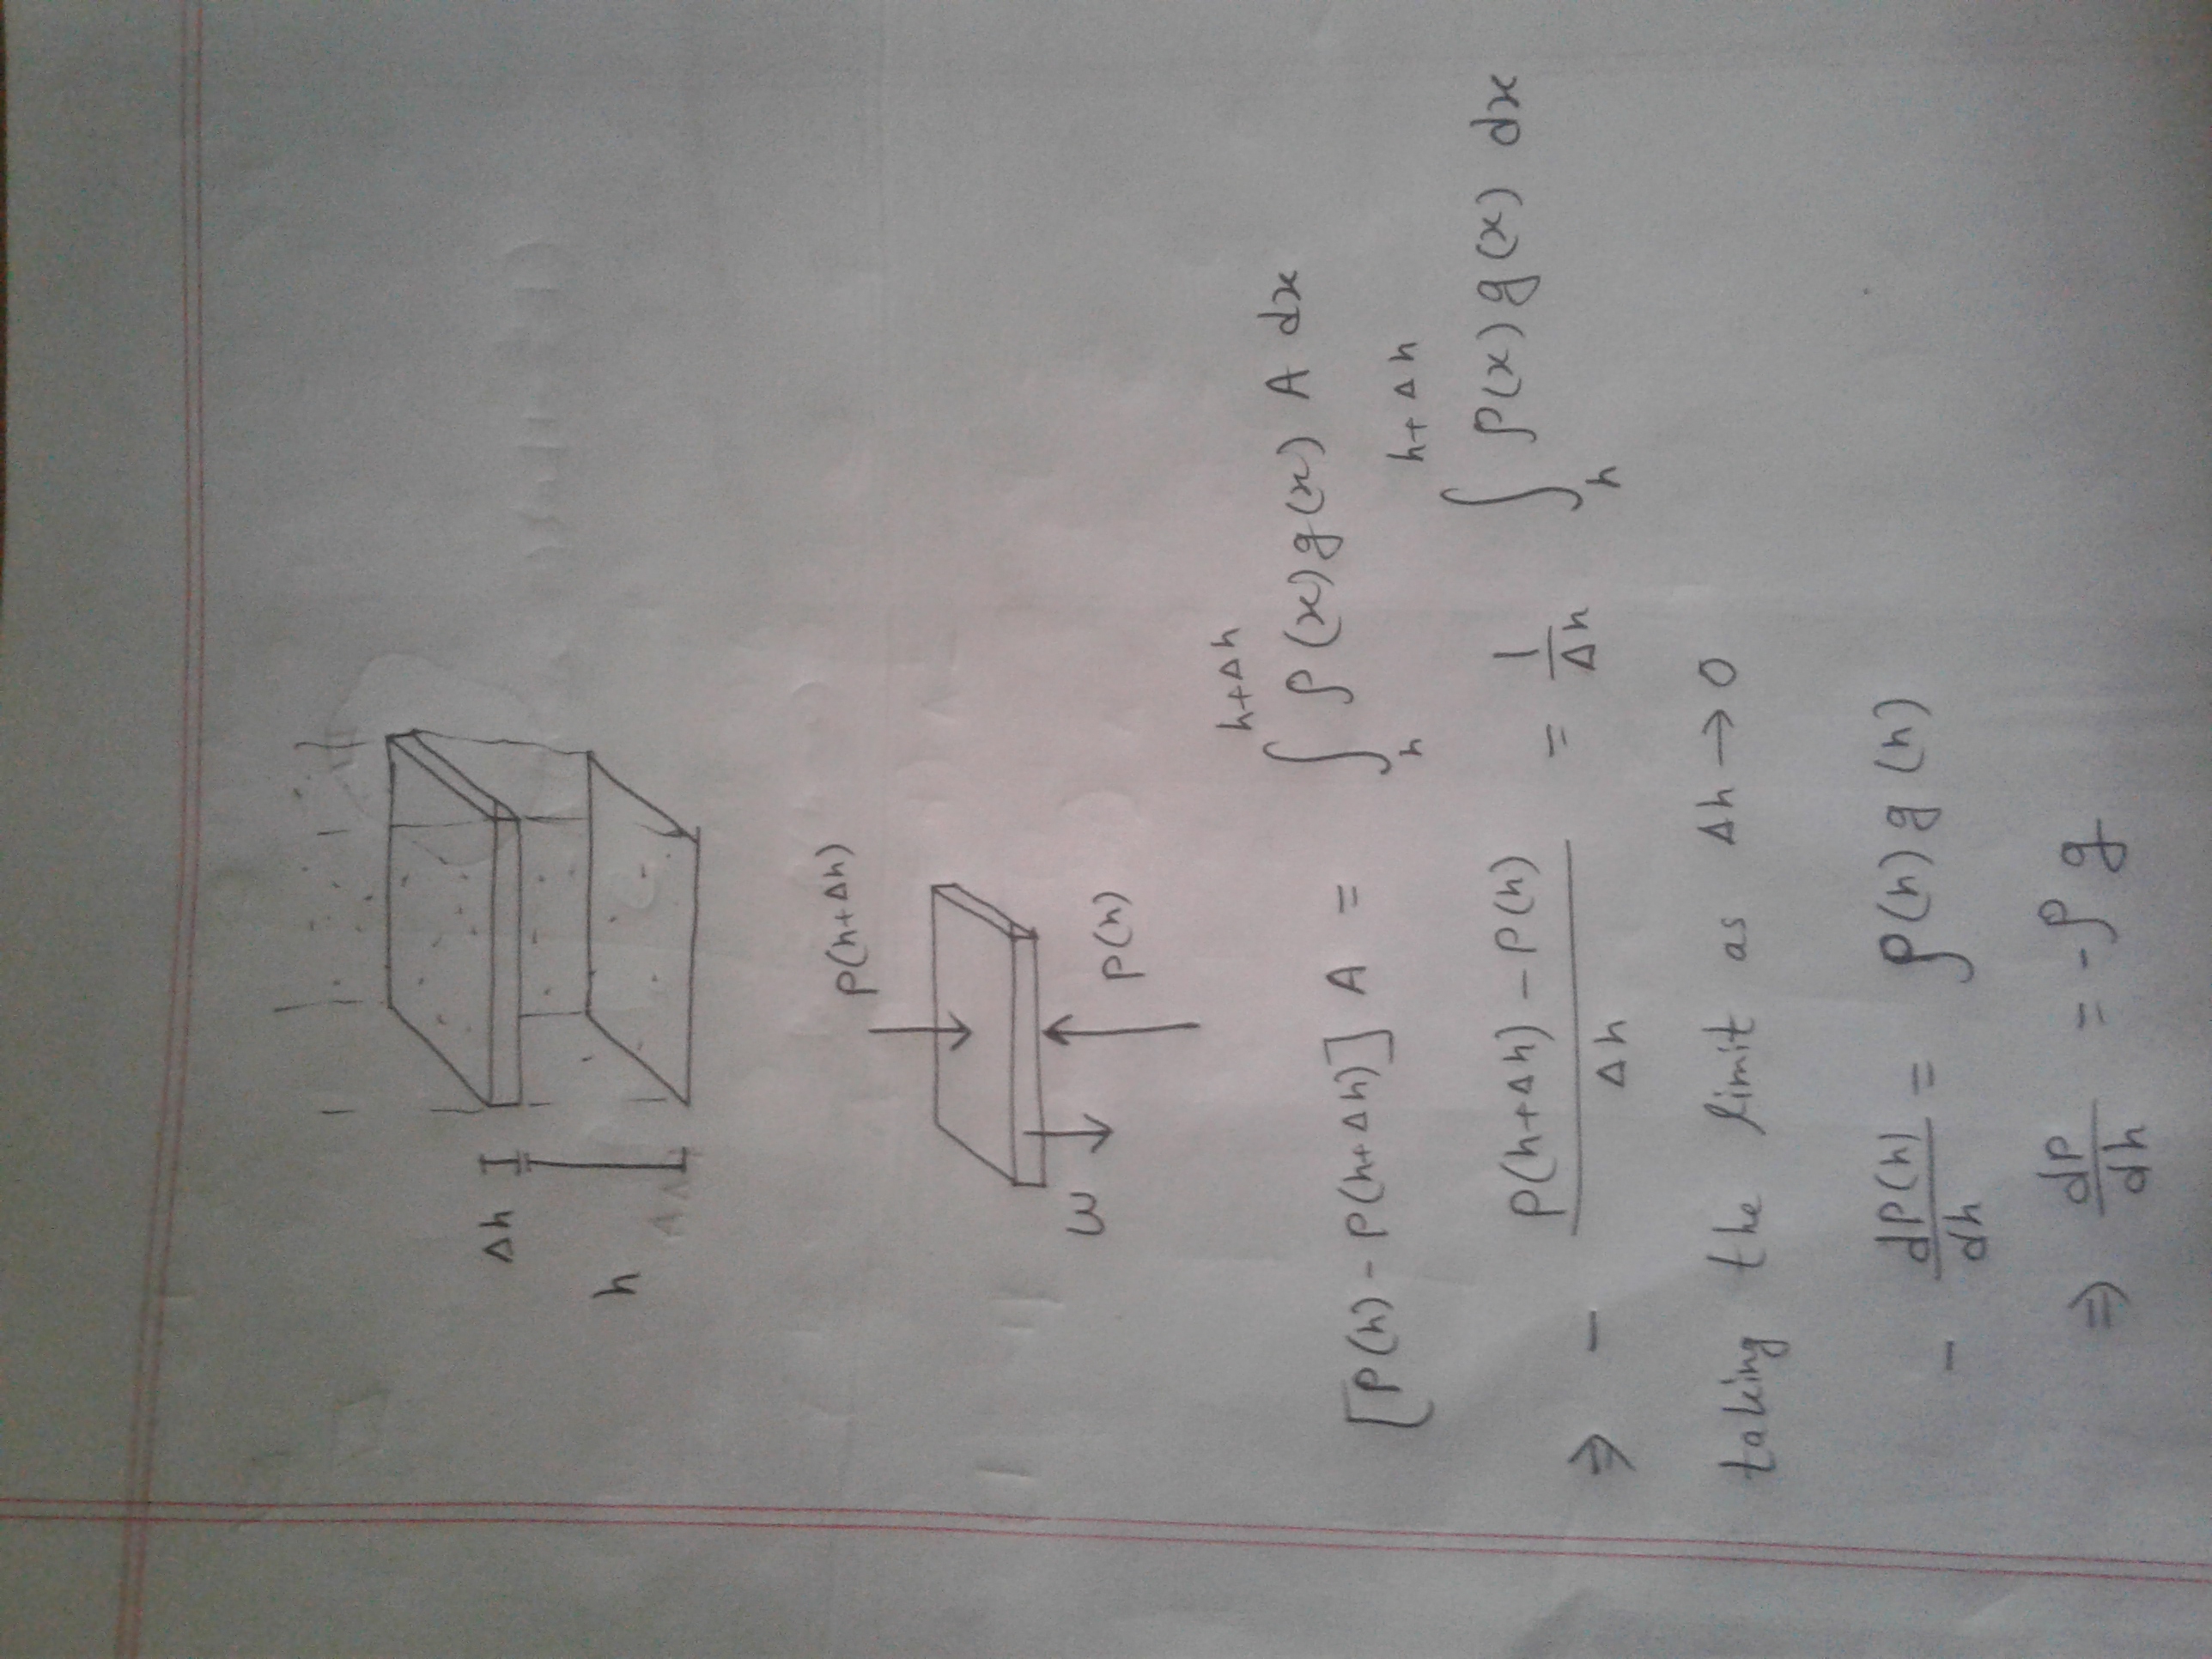 Δh
h
P(h+Δh)
W
P(h)
[P(h) - P(h+Δh)] A = ∫ₕ^(h+Δh) ρ(x) g(x) A dx
⇒ - (P(h+Δh) - P(h))/Δh = 1/Δh ∫ₕ^(h+Δh) ρ(x) g(x) dx
taking the limit as Δh → 0
- dP(h)/dh = ρ(h) g(h)
⇒ dP/dh = -ρ g